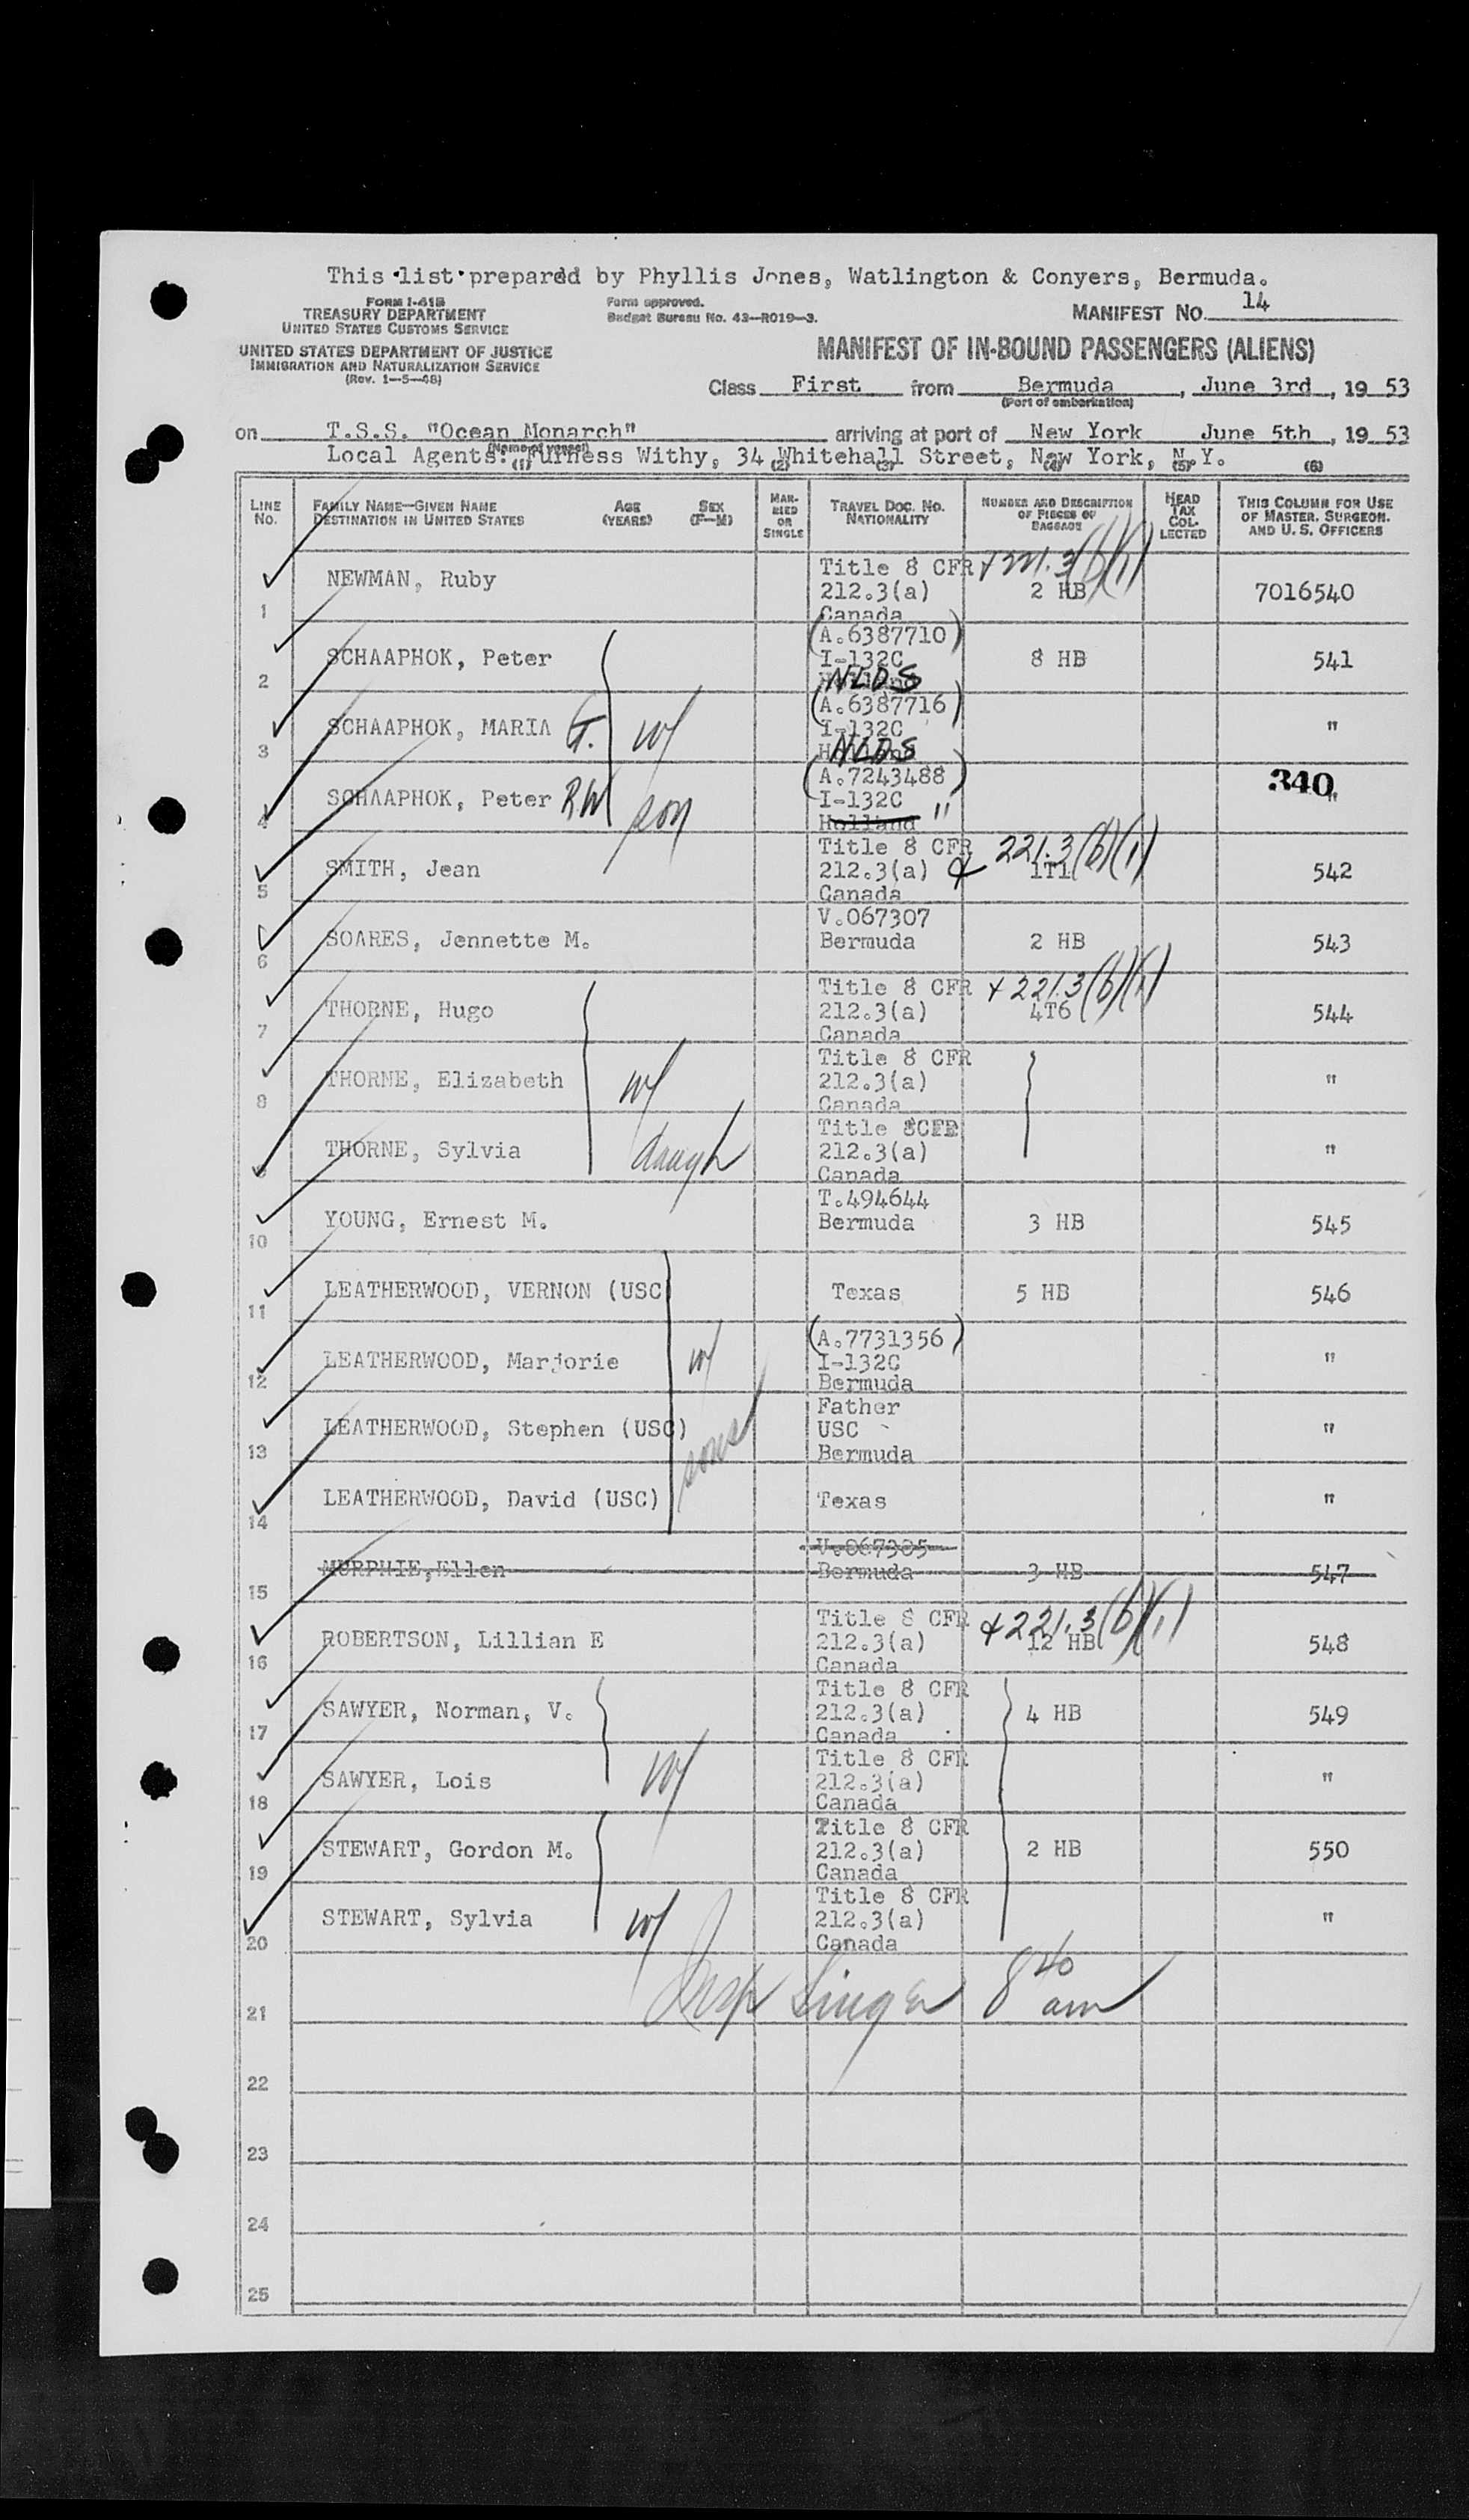 This list prepared by Phyllis Jones, Watlington & Conyers, Bermuda.
FORM I-418
TREASURY DEPARTMENT
UNITED STATES CUSTOMS SERVICE
Form approved.
Budget Bureau No. 43-R019-3.
MANIFEST NO. 14
UNITED STATES DEPARTMENT OF JUSTICE
IMMIGRATION AND NATURALIZATION SERVICE
(Rev. 1-5-48)
MANIFEST OF IN-BOUND PASSENGERS (ALIENS)
Class First from Bermuda, June 3rd, 19 53
(Port of embarkation)
on T.S.S. "Ocean Monarch" arriving at port of New York June 5th, 19 53
(Name of vessel)
Local Agents: Furness Withy, 34 Whitehall Street, New York, N.Y.
(1) (2) (3) (4) (5) (6)
LINE No. FAMILY NAME—GIVEN NAME DESTINATION IN UNITED STATES AGE (YEARS) SEX (F-M) MARRIED OR SINGLE TRAVEL DOC. NO. NATIONALITY NUMBER AND DESCRIPTION OF PIECES OF BAGGAGE HEAD TAX COLLECTED THIS COLUMN FOR USE OF MASTER, SURGEON, AND U.S. OFFICERS
1 NEWMAN, Ruby Title 8 CFR + 221.3(b)(1) 212.3(a) Canada 2 HB 7016540
2 SCHAAPHOK, Peter (A.6387710) I-132C Holland NLDS 8 HB 541
3 SCHAAPHOK, MARIA G. w/ (A.6387716) I-132C Holland NLDS "
4 SCHAAPHOK, Peter RW son (A.7243488) I-132C Holland " 340 "
5 SMITH, Jean Title 8 CFR 212.3(a) & 221.3(b)(1) Canada 1T1 542
6 SOARES, Jennette M. V.067307 Bermuda 2 HB 543
7 THORNE, Hugo Title 8 CFR + 221.3(b)(1) 212.3(a) Canada 4T6 544
8 THORNE, Elizabeth w/ Title 8 CFR 212.3(a) Canada "
9 THORNE, Sylvia daugh Title 8CFR 212.3(a) Canada "
10 YOUNG, Ernest M. T.494644 Bermuda 3 HB 545
11 LEATHERWOOD, VERNON (USC) Texas 5 HB 546
12 LEATHERWOOD, Marjorie w/ (A.7731356) I-132C Bermuda "
13 LEATHERWOOD, Stephen (USC) sons Father USC Bermuda "
14 LEATHERWOOD, David (USC) Texas "
15 MURPHIE, Ellen V.067305 Bermuda 3 HB 547
16 ROBERTSON, Lillian E Title 8 CFR + 221.3(b)(1) 212.3(a) Canada 12 HB 548
17 SAWYER, Norman, V. Title 8 CFR 212.3(a) Canada 4 HB 549
18 SAWYER, Lois w/ Title 8 CFR 212.3(a) Canada "
19 STEWART, Gordon M. Title 8 CFR 212.3(a) Canada 2 HB 550
20 STEWART, Sylvia w/ Title 8 CFR 212.3(a) Canada "
21 Insp Singer 8 40 am
22
23
24
25